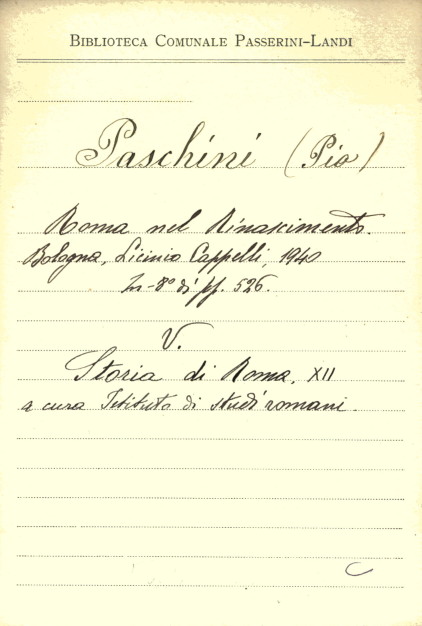 BIBLIOTECA COMUNALE PASSERINI-LANDI
Paschini (Pio)
Roma nel Rinascimento.
Bologna, Licinio Cappelli, 1940
In-8° di pp. 526.
V.
Storia di Roma, XII
a cura Istituto di studi romani.
C